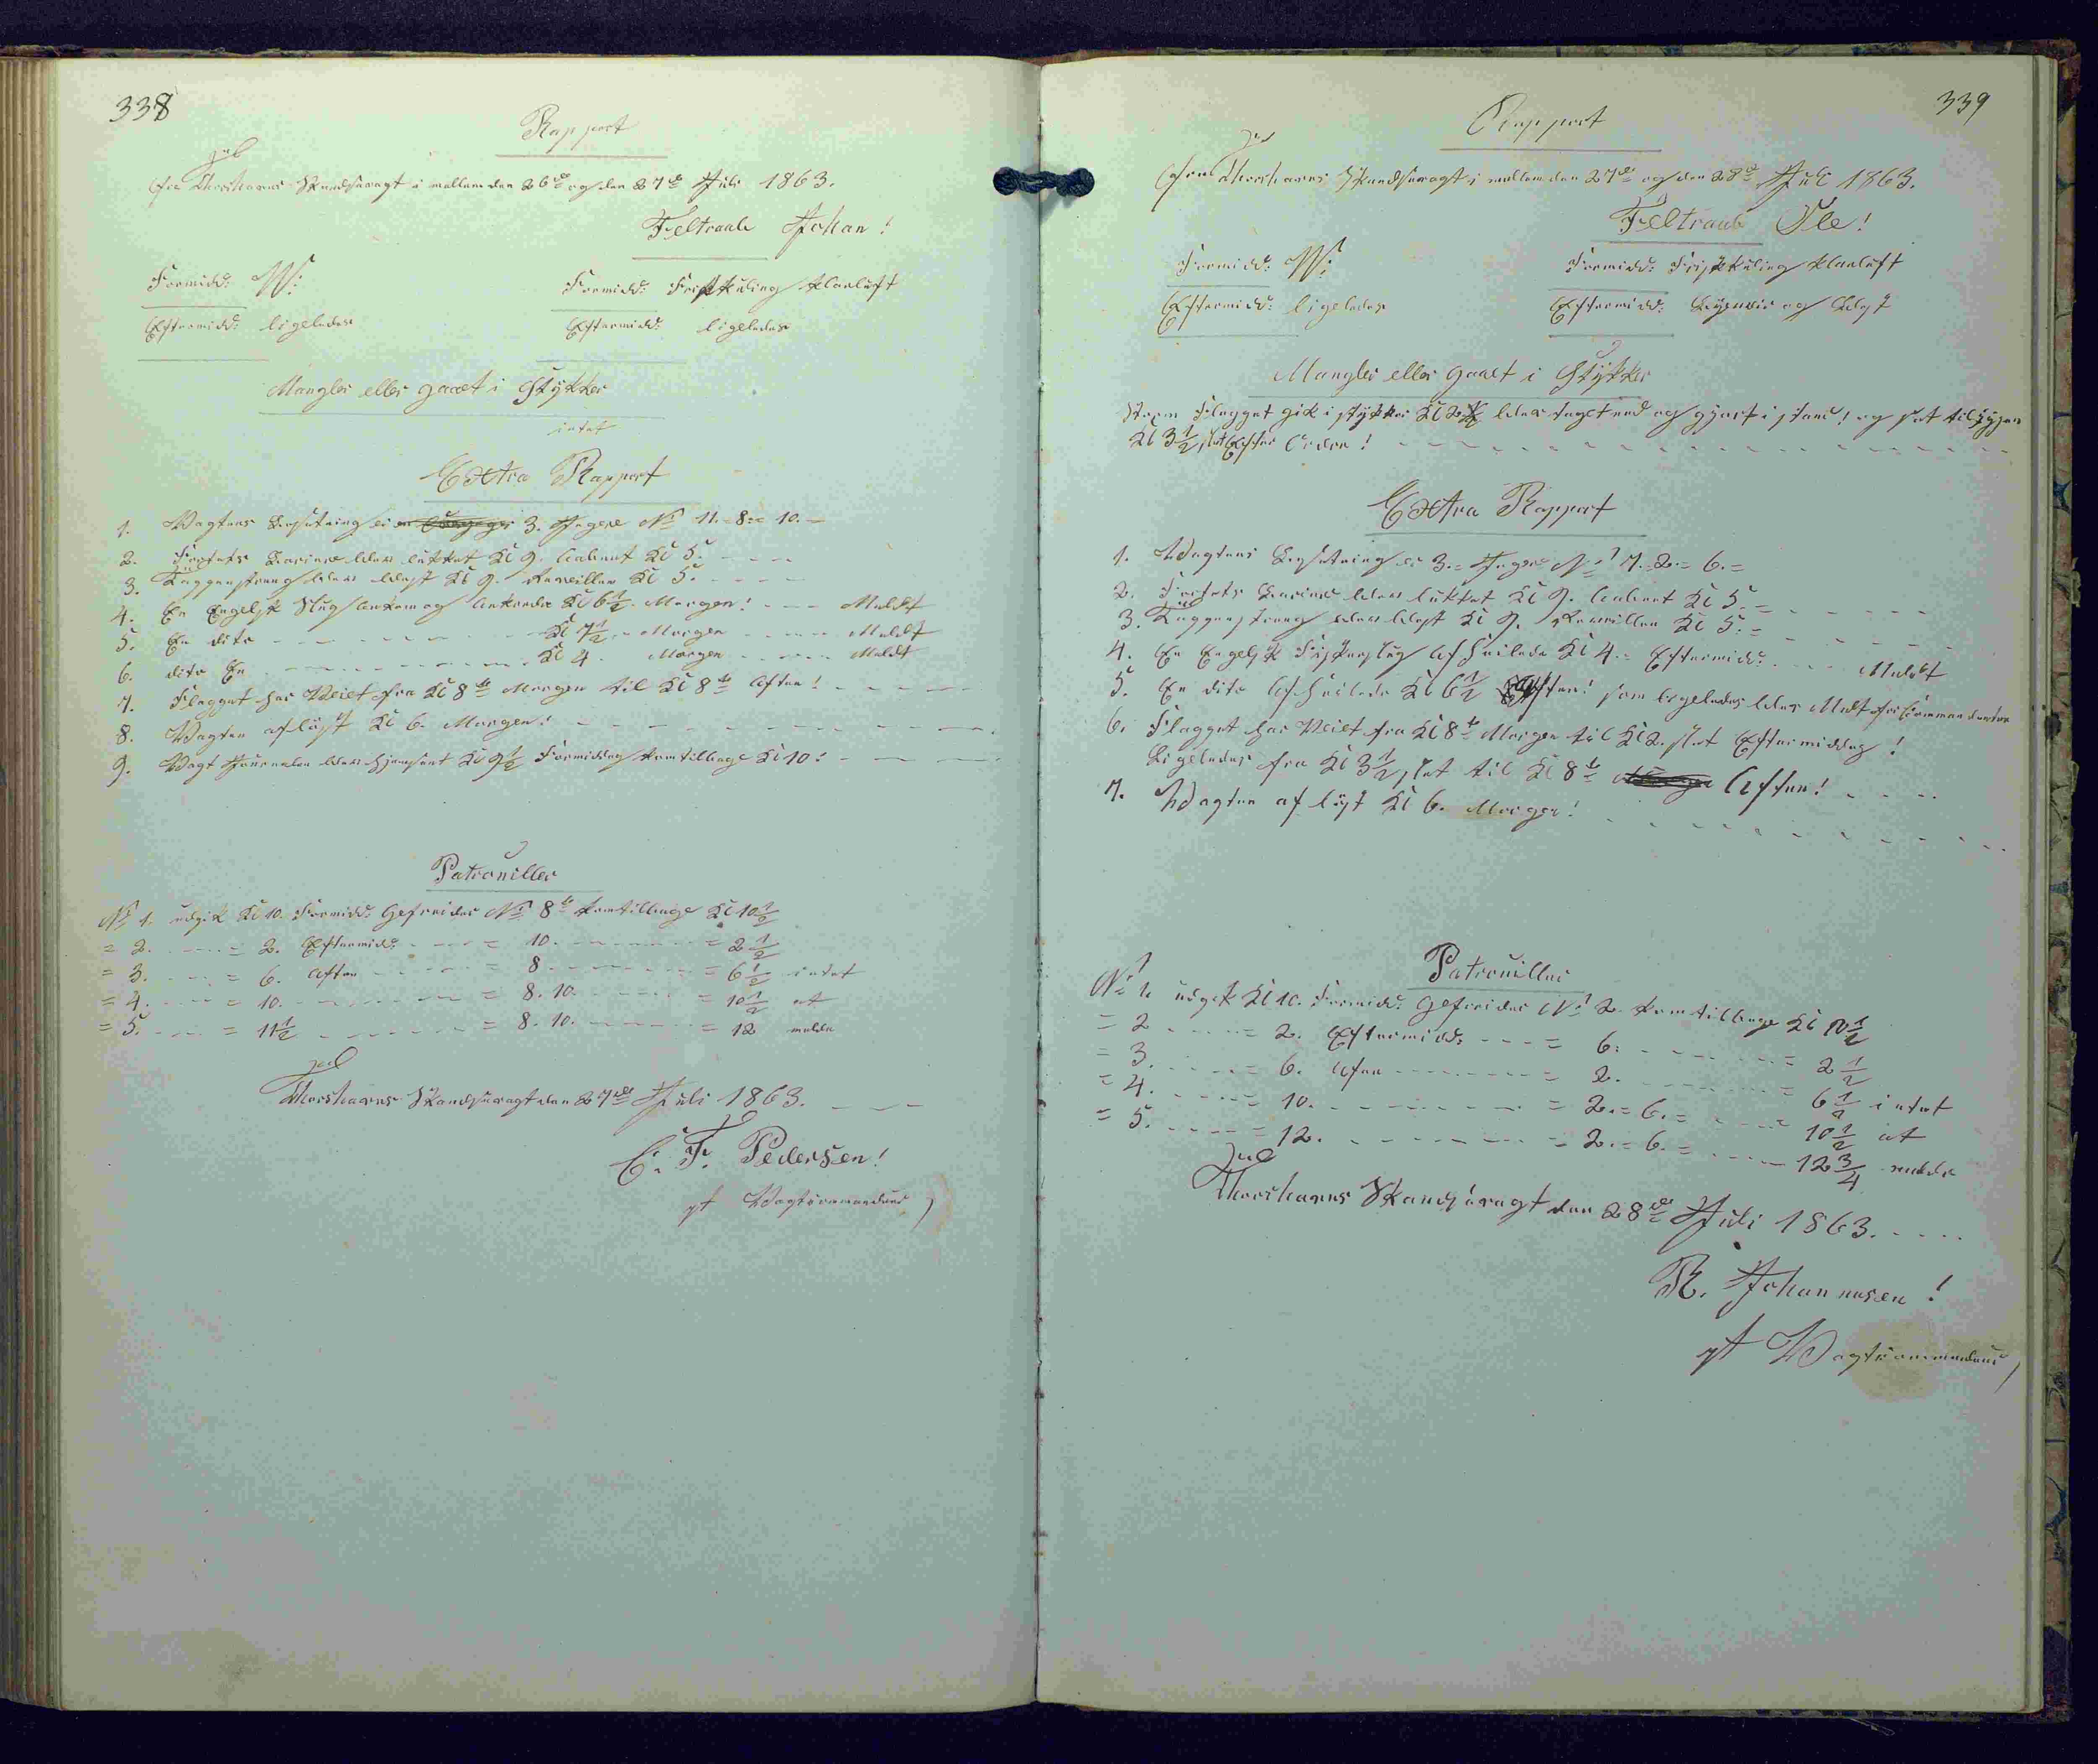 338
Rapport
fra Thorshavns Skandsevagt i mellem den 26de og den 27de Juli 1863.
Feltraab Johan!
Formidd: W:
Formidd: Friskkuling klarluft
Eftermidd: ligeledes
Eftermidd: ligeledes
Mangler eller gaaet i Stykker
intet
Extra Rapport
1. Vagtens Besetning er 3. Jægere No 11. = 8 = 10. —
2. Fortets Barriere blev lukket Kl 9. aabnet Kl 5. - - - -
3. Tappenstreng blev blæst Kl 9. Reveillen Kl 5. - - - -
4. En Engelsk Slup ankom og ankrede Kl 6½. Morgen! - - - Meldt
5. En dito - - - - Kl 7½. - Morgen - - - - Meldt
6. dito En - - - - Kl 4. Morgen - - - - Meldt
7. Flagget har Veiet fra Kl 8te Morgen til Kl 8te Aften! - - - -
8. Vagten afløst Kl 6. Morgen! - - - -
9. Vagt Journalen blev hjemsent Kl 9½ Formiddag kom tilbage Kl 10! - - - -
Patrouiller
No 1. udgik Kl 10. Formidd: Gefreider No 8te kom tilbage Kl 10½
= 2. - - - = 2. Eftermidd: - - - = 10. - - - = 2½
= 3. - - - = 6. Aften - - - = 8 - - - = 6½ intet
= 4. - - - = 10. - - - = 8. 10. - - - = 10½ at
= 5. - - - = 11½ - - - = 8. 10. - - - = 12 melde
Thorshavns Skandsevagt den 27de Juli 1863. - - -
C. F. Pedersen!
pt Vagtcommandeur
339
Rapport
fra Thorshavns Skandsevagt i mellem den 27de og den 28de Juli 1863.
Feltraab Ole!
Formidd: W:
Formidd: Friskkuling klarluft
Eftermidd: ligeledes
Eftermidd: Bygeveir og blæst
Mangler eller gaaet i Stykker
Storm Flagget gik i stykker Kl 2 blev taget ned og gjort i stand! og sat til Vejrs igjen
Kl 3½ slet Efter Orden! - - - -
Extra Rapport
1. Vagtens Besetning er 3. = Jægere No 7. = 2. = 6. =
2. Fortets Barriere blev lukket Kl 9. aabnet Kl 5. = - - - -
3. Tappenstreng blev blæst Kl 9. Reveillen Kl 5. = - - - -
4. En Engelsk Fiskerslup afseilede Kl 4. = Eftermidd: - - - Meldt
5. En dito afseilede Kl 6½ Aften! som ligeledes blev Meldt for Commandanten
6. Flagget har Veiet fra Kl 8te Morgen til Kl 2. slet Eftermiddag!
Ligeledes fra Kl 3½ slet til Kl 8te Aften! - - - -
7. Vagten afløst Kl 6. Morgen! - - - -
Patrouiller
No 1. udgik Kl 10. Formidd: Gefreider No 2. kom tilbage Kl 10½
= 2 - - - = 2. Eftermidd: - - - = 6: - - - = 2½
= 3. - - - = 6. Aften - - - = 2. - - - = 6½ intet
= 4. - - - = 10. - - - = 2. = 6. = - - - = 10½ at
= 5. - - - = 12. - - - = 2. = 6. = - - - 12¾ melde
Thorshavns Skandsevagt den 28de Juli 1863. - - - -
R. Johannesen!
pt Vagtcommandeur